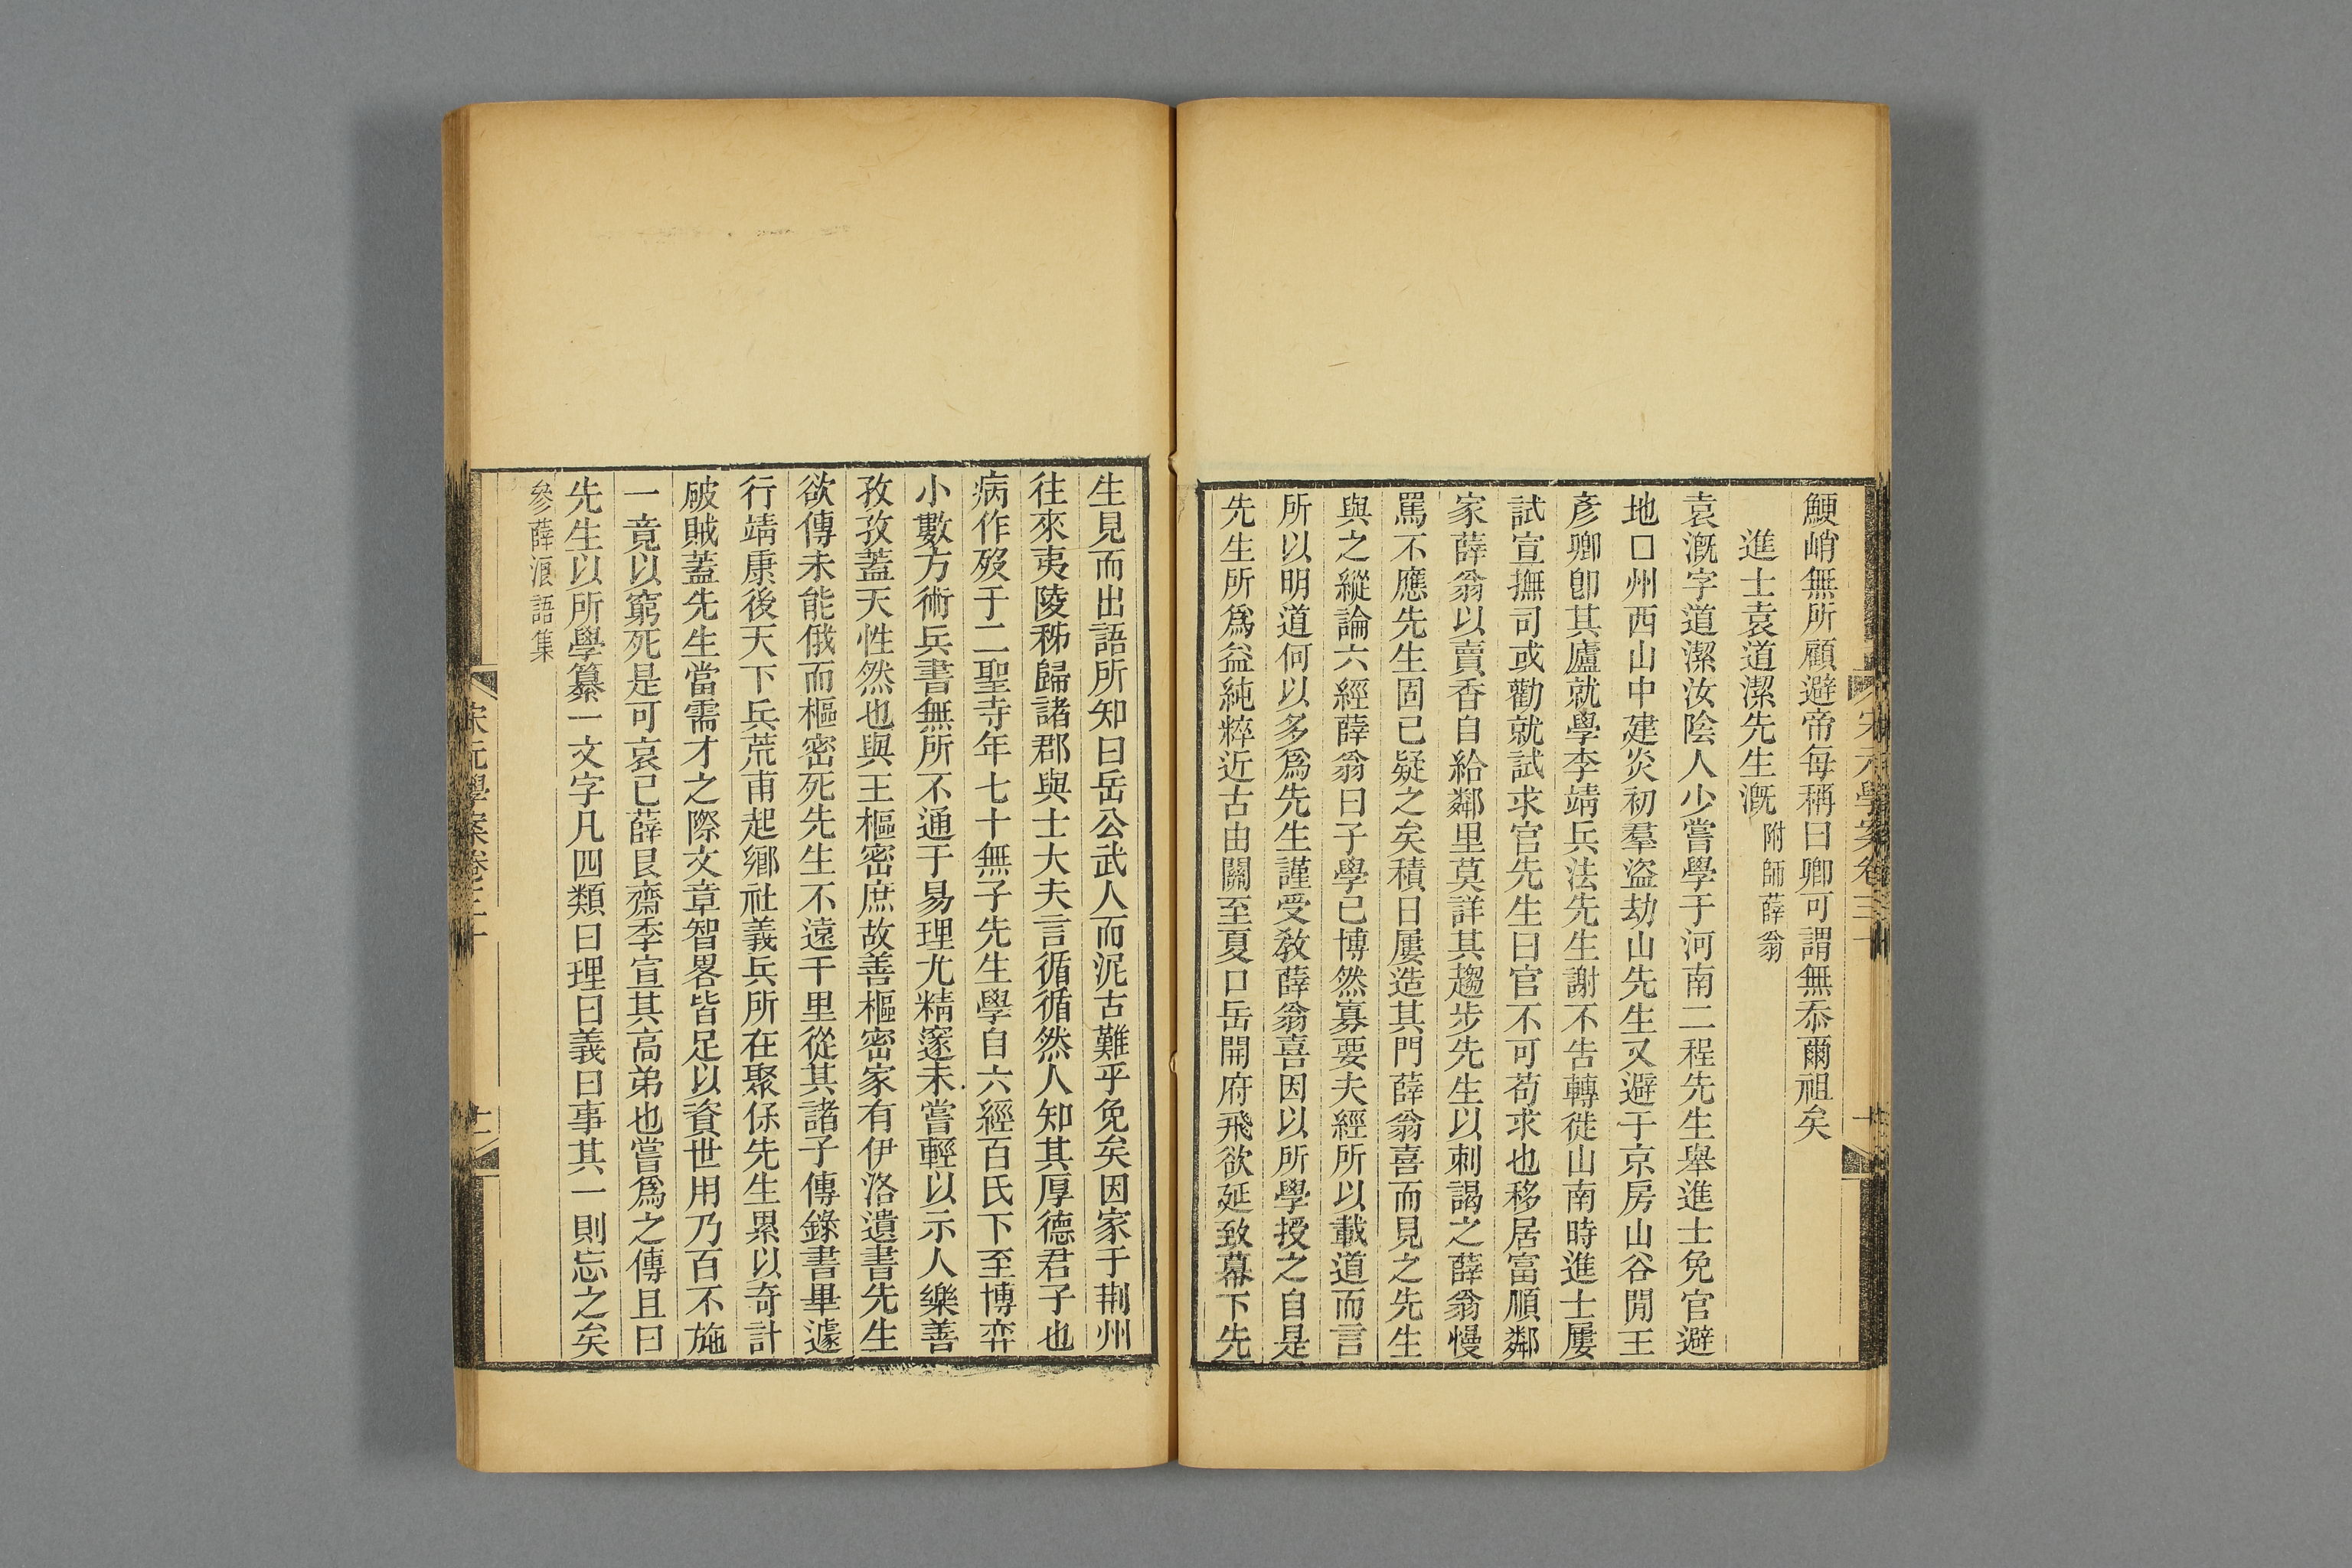 宋元學案卷三十
十
鯁峭無所顧避帝每稱曰卿可謂無忝爾祖矣
進士袁道潔先生溉 附師薛翁
袁溉字道潔汝陰人少嘗學于河南二程先生舉進士免官避
地口州西山中建炎初羣盜劫山先生又避于京房山谷間王
彥卿卽其廬就學李靖兵法先生謝不告轉徙山南時進士屢
試宣撫司或勸就試求官先生曰官不可苟求也移居富順鄰
家薛翁以賣香自給鄰里莫詳其趨步先生以刺謁之薛翁慢
罵不應先生固已疑之矣積日屢造其門薛翁喜而見之先生
與之縱論六經薛翁曰子學已博然寡要夫經所以載道而言
所以明道何以多爲先生謹受敎薛翁喜因以所學授之自是
先生所爲益純粹近古由關至夏口岳開府飛欲延致幕下先
生見而出語所知曰岳公武人而泥古難乎免矣因家于荆州
往來夷陵秭歸諸郡與士大夫言循循然人知其厚德君子也
病作歿于二聖寺年七十無子先生學自六經百氏下至博弈
小數方術兵書無所不通于易理尤精邃未嘗輕以示人樂善
孜孜蓋天性然也與王樞密庶故善樞密家有伊洛遺書先生
欲傳未能俄而樞密死先生不遠千里從其諸子傳錄書畢遽
行靖康後天下兵荒甫起鄉社義兵所在聚保先生累以奇計
破賊蓋先生當需才之際文章智畧皆足以資世用乃百不施
一竟以窮死是可哀已薛艮齋季宣其高弟也嘗爲之傳且曰
先生以所學纂一文字凡四類曰理曰義曰事其一則忘之矣
參薛浪語集
宋元學案卷三十
十一